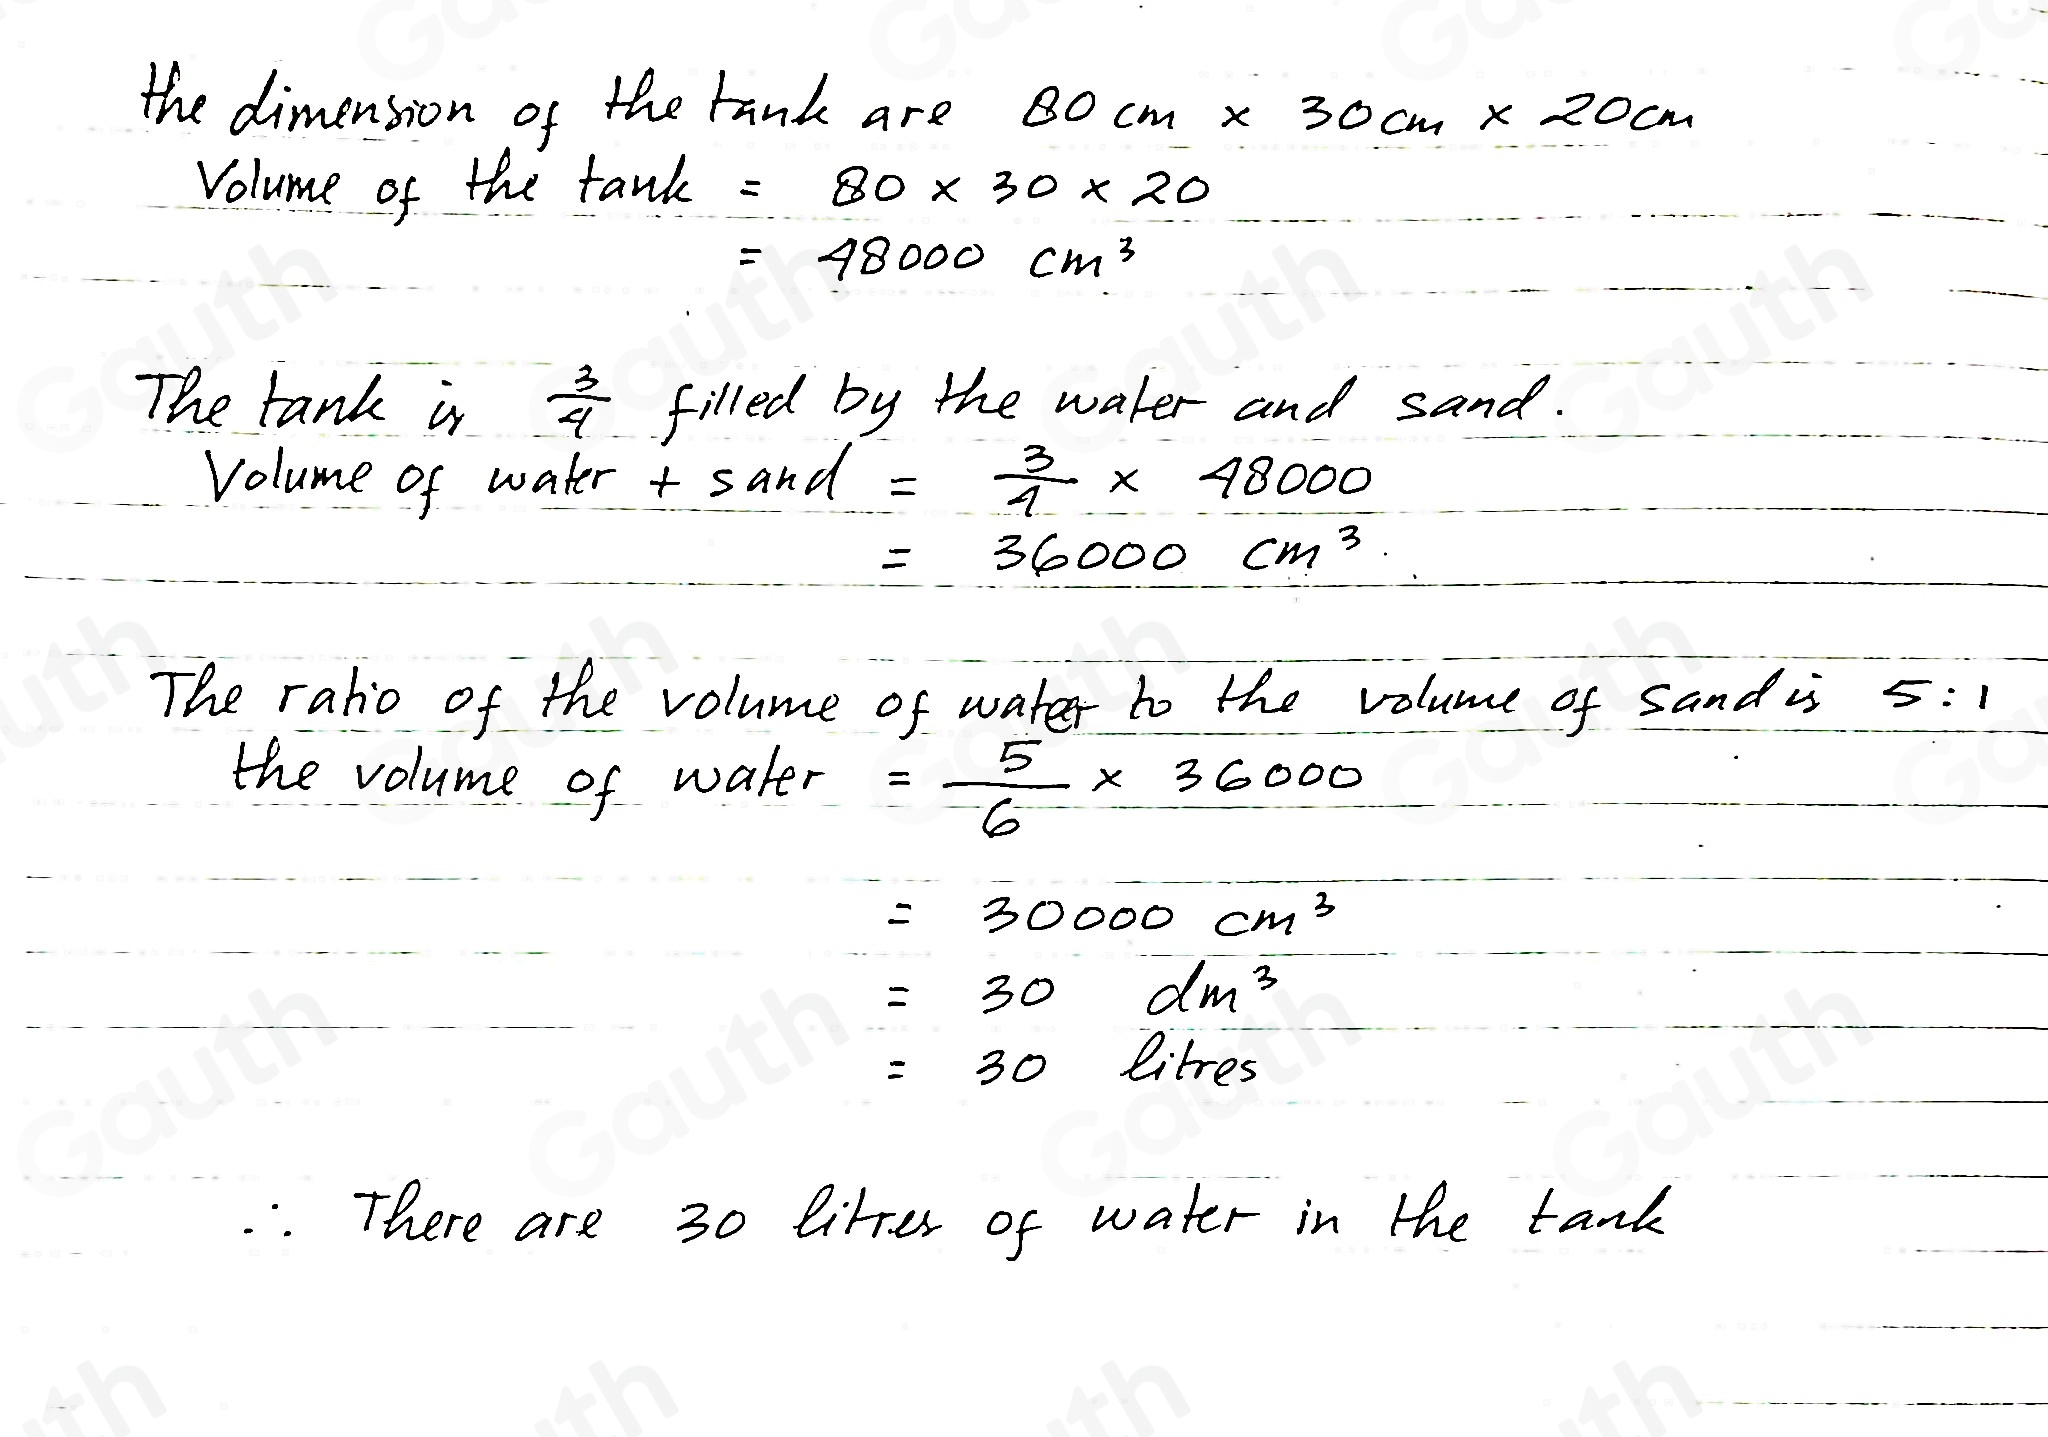 the dimension of the tank are 80 cm × 30 cm × 20 cm
Volume of the tank = 80 × 30 × 20
= 48000 cm³
The tank is 3/4 filled by the water and sand.
Volume of water + sand = 3/4 × 48000
= 36000 cm³.
The ratio of the volume of water to the volume of sand is 5:1
the volume of water = 5/6 × 36000
= 30000 cm³
= 30 dm³
= 30 litres
∴ There are 30 litres of water in the tank
Gauth